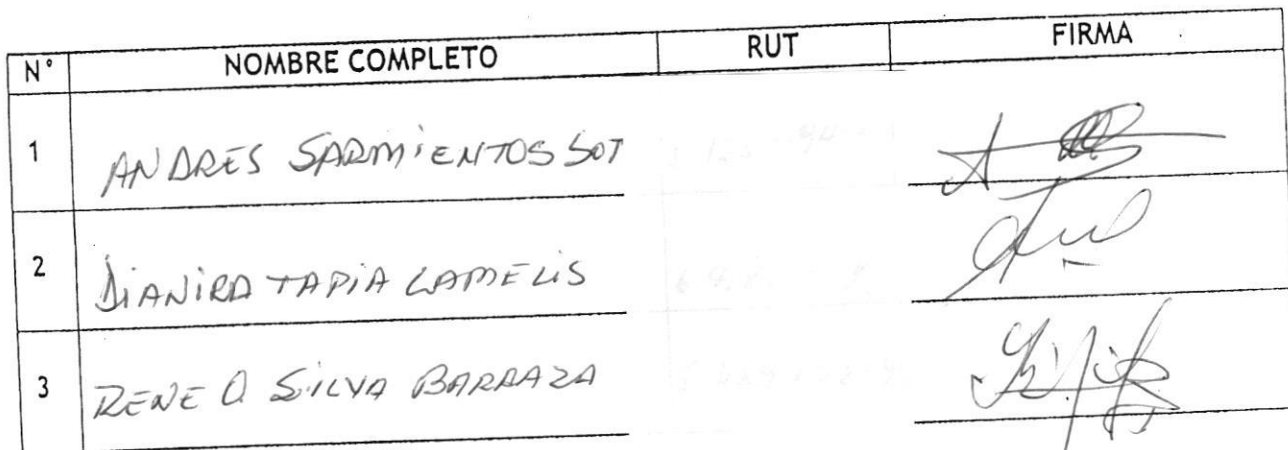 N° NOMBRE COMPLETO RUT FIRMA
1 ANDRES SARMIENTOS SOT
2 DIANIRA TAPIA LAMELIS
3 RENE O. SILVA BARRAZA